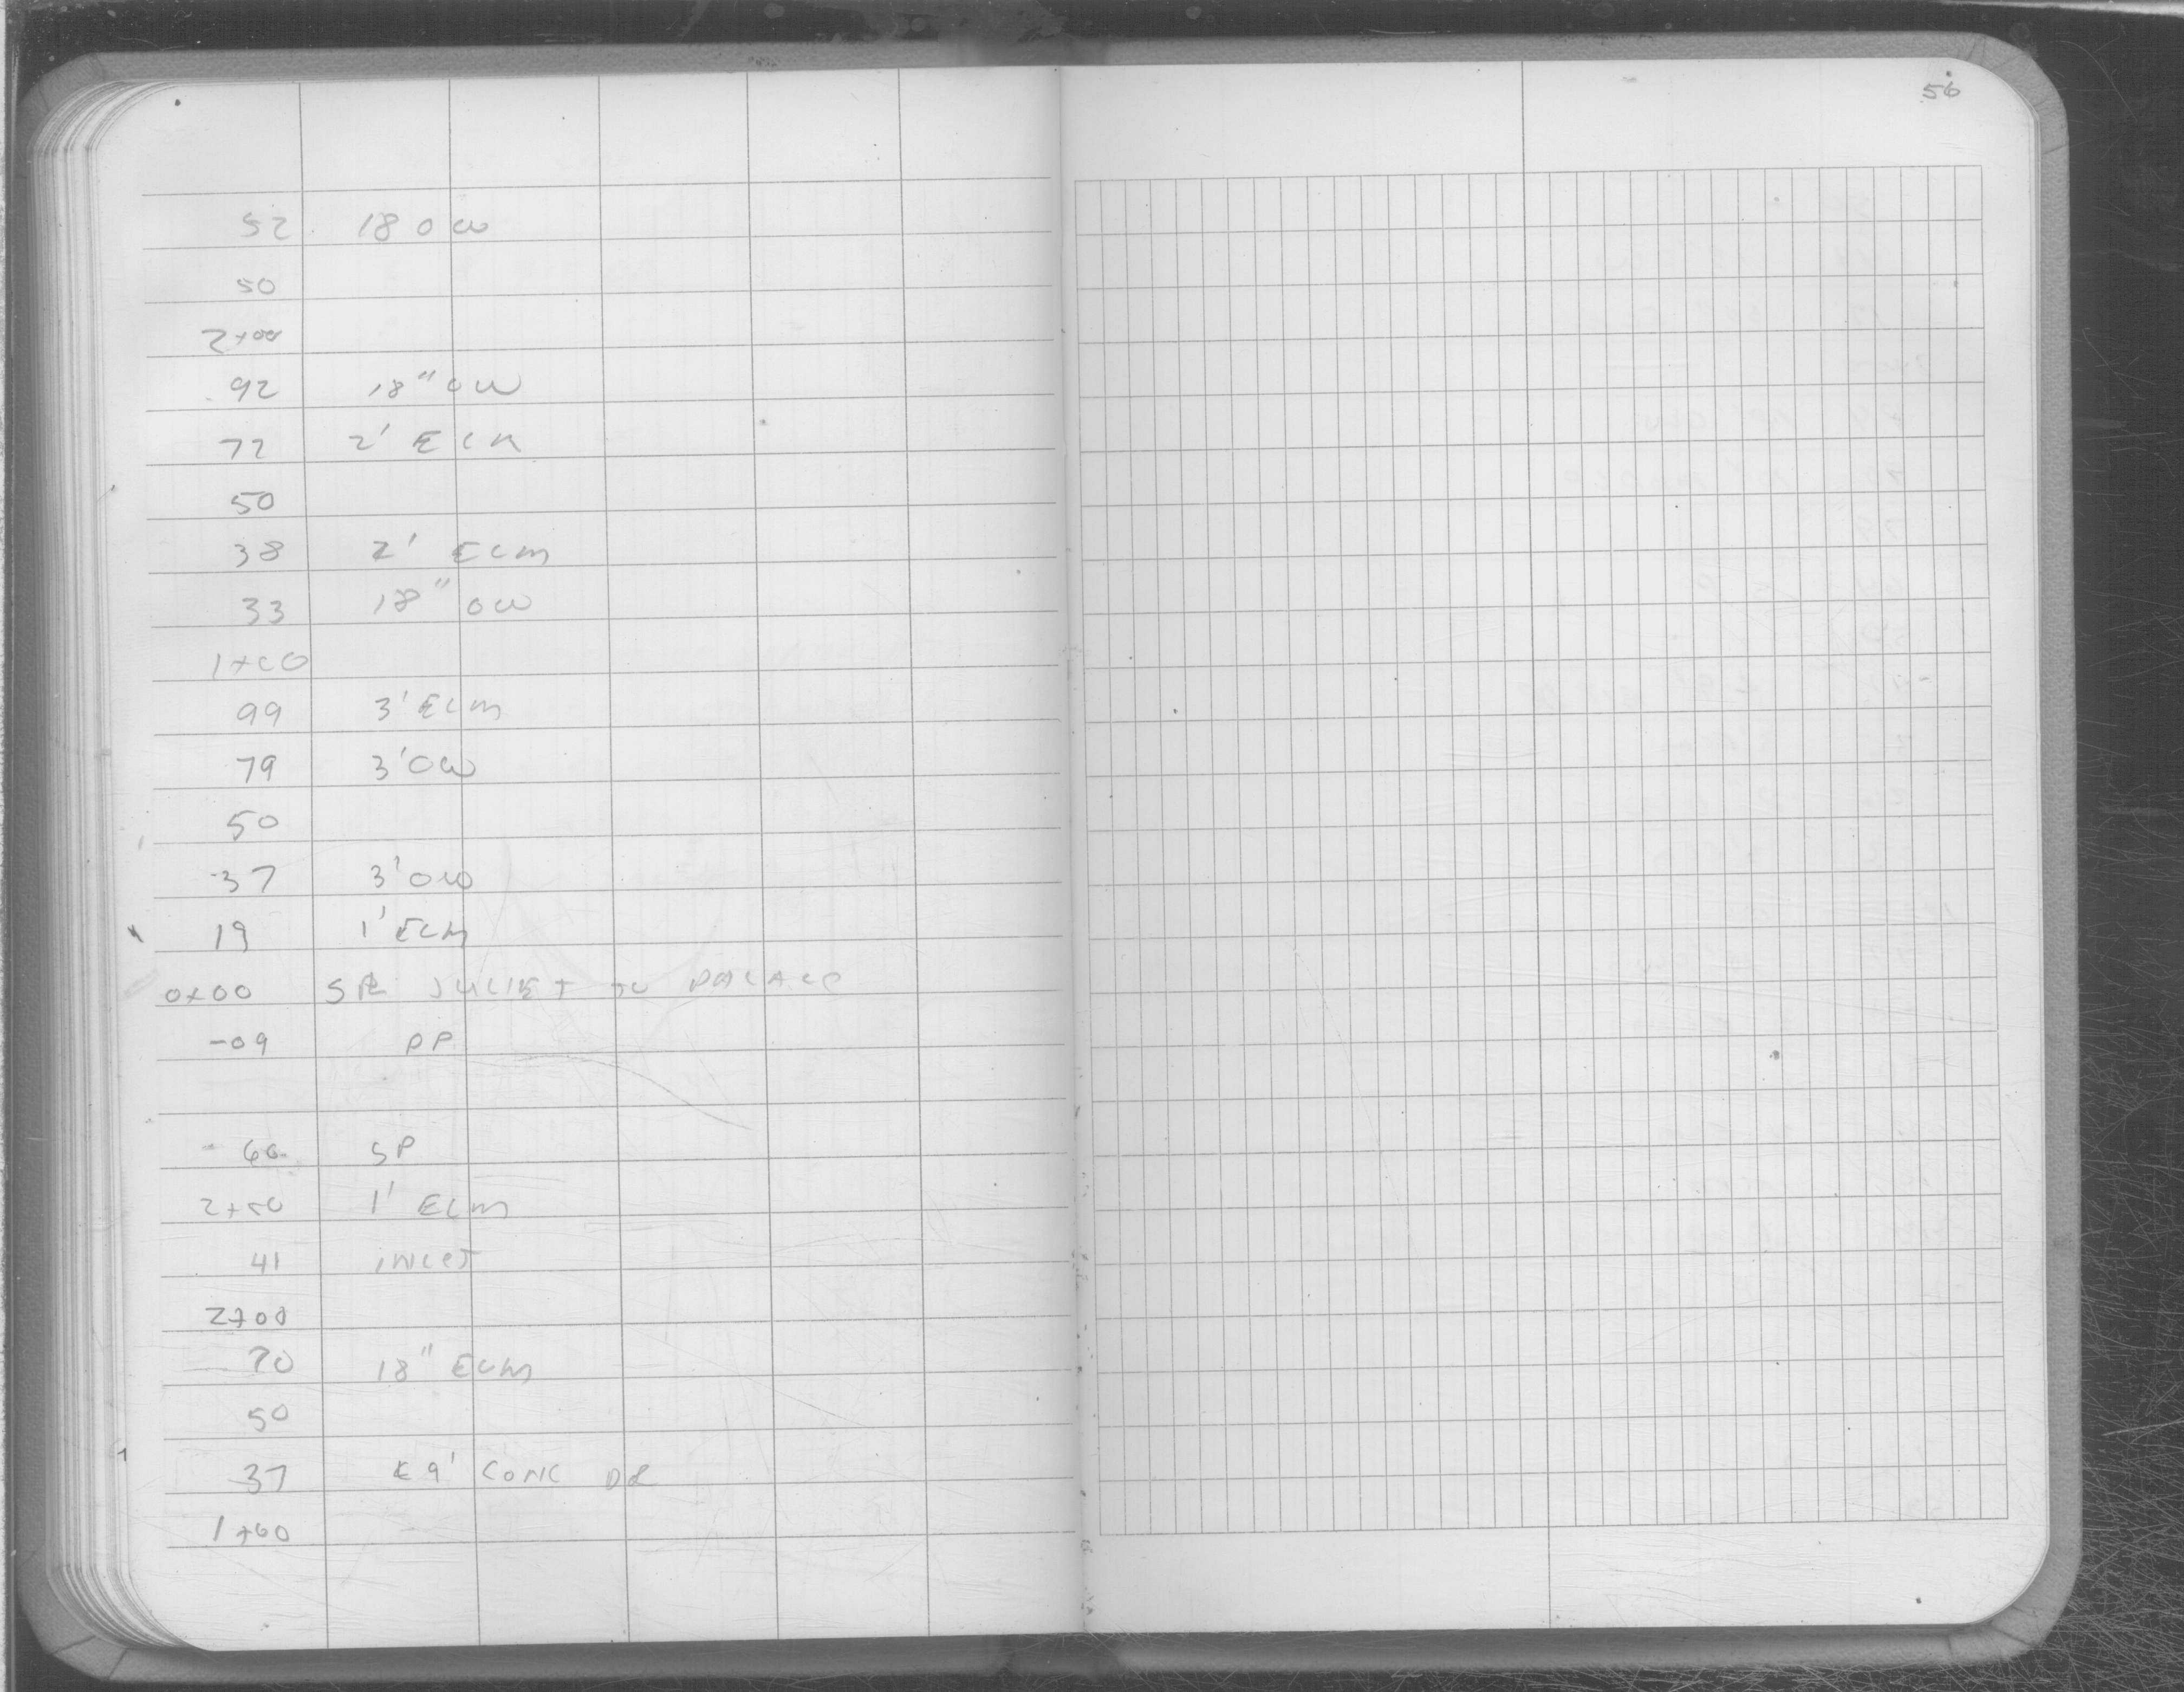 56
52 18 OW
50
2+00
92 18" OW
72 2' ELM
50
38 2' ELM
33 18" OW
1+00
99 3' ELM
79 3' OW
50
37 3' OW
19 1' ELM
0+00 JULIET TO PALACE
-09 PP
60 SP
2+50 1' ELM
41 INLET
2+00
70 18" ELM
50
37 9' CONC DR
1+00